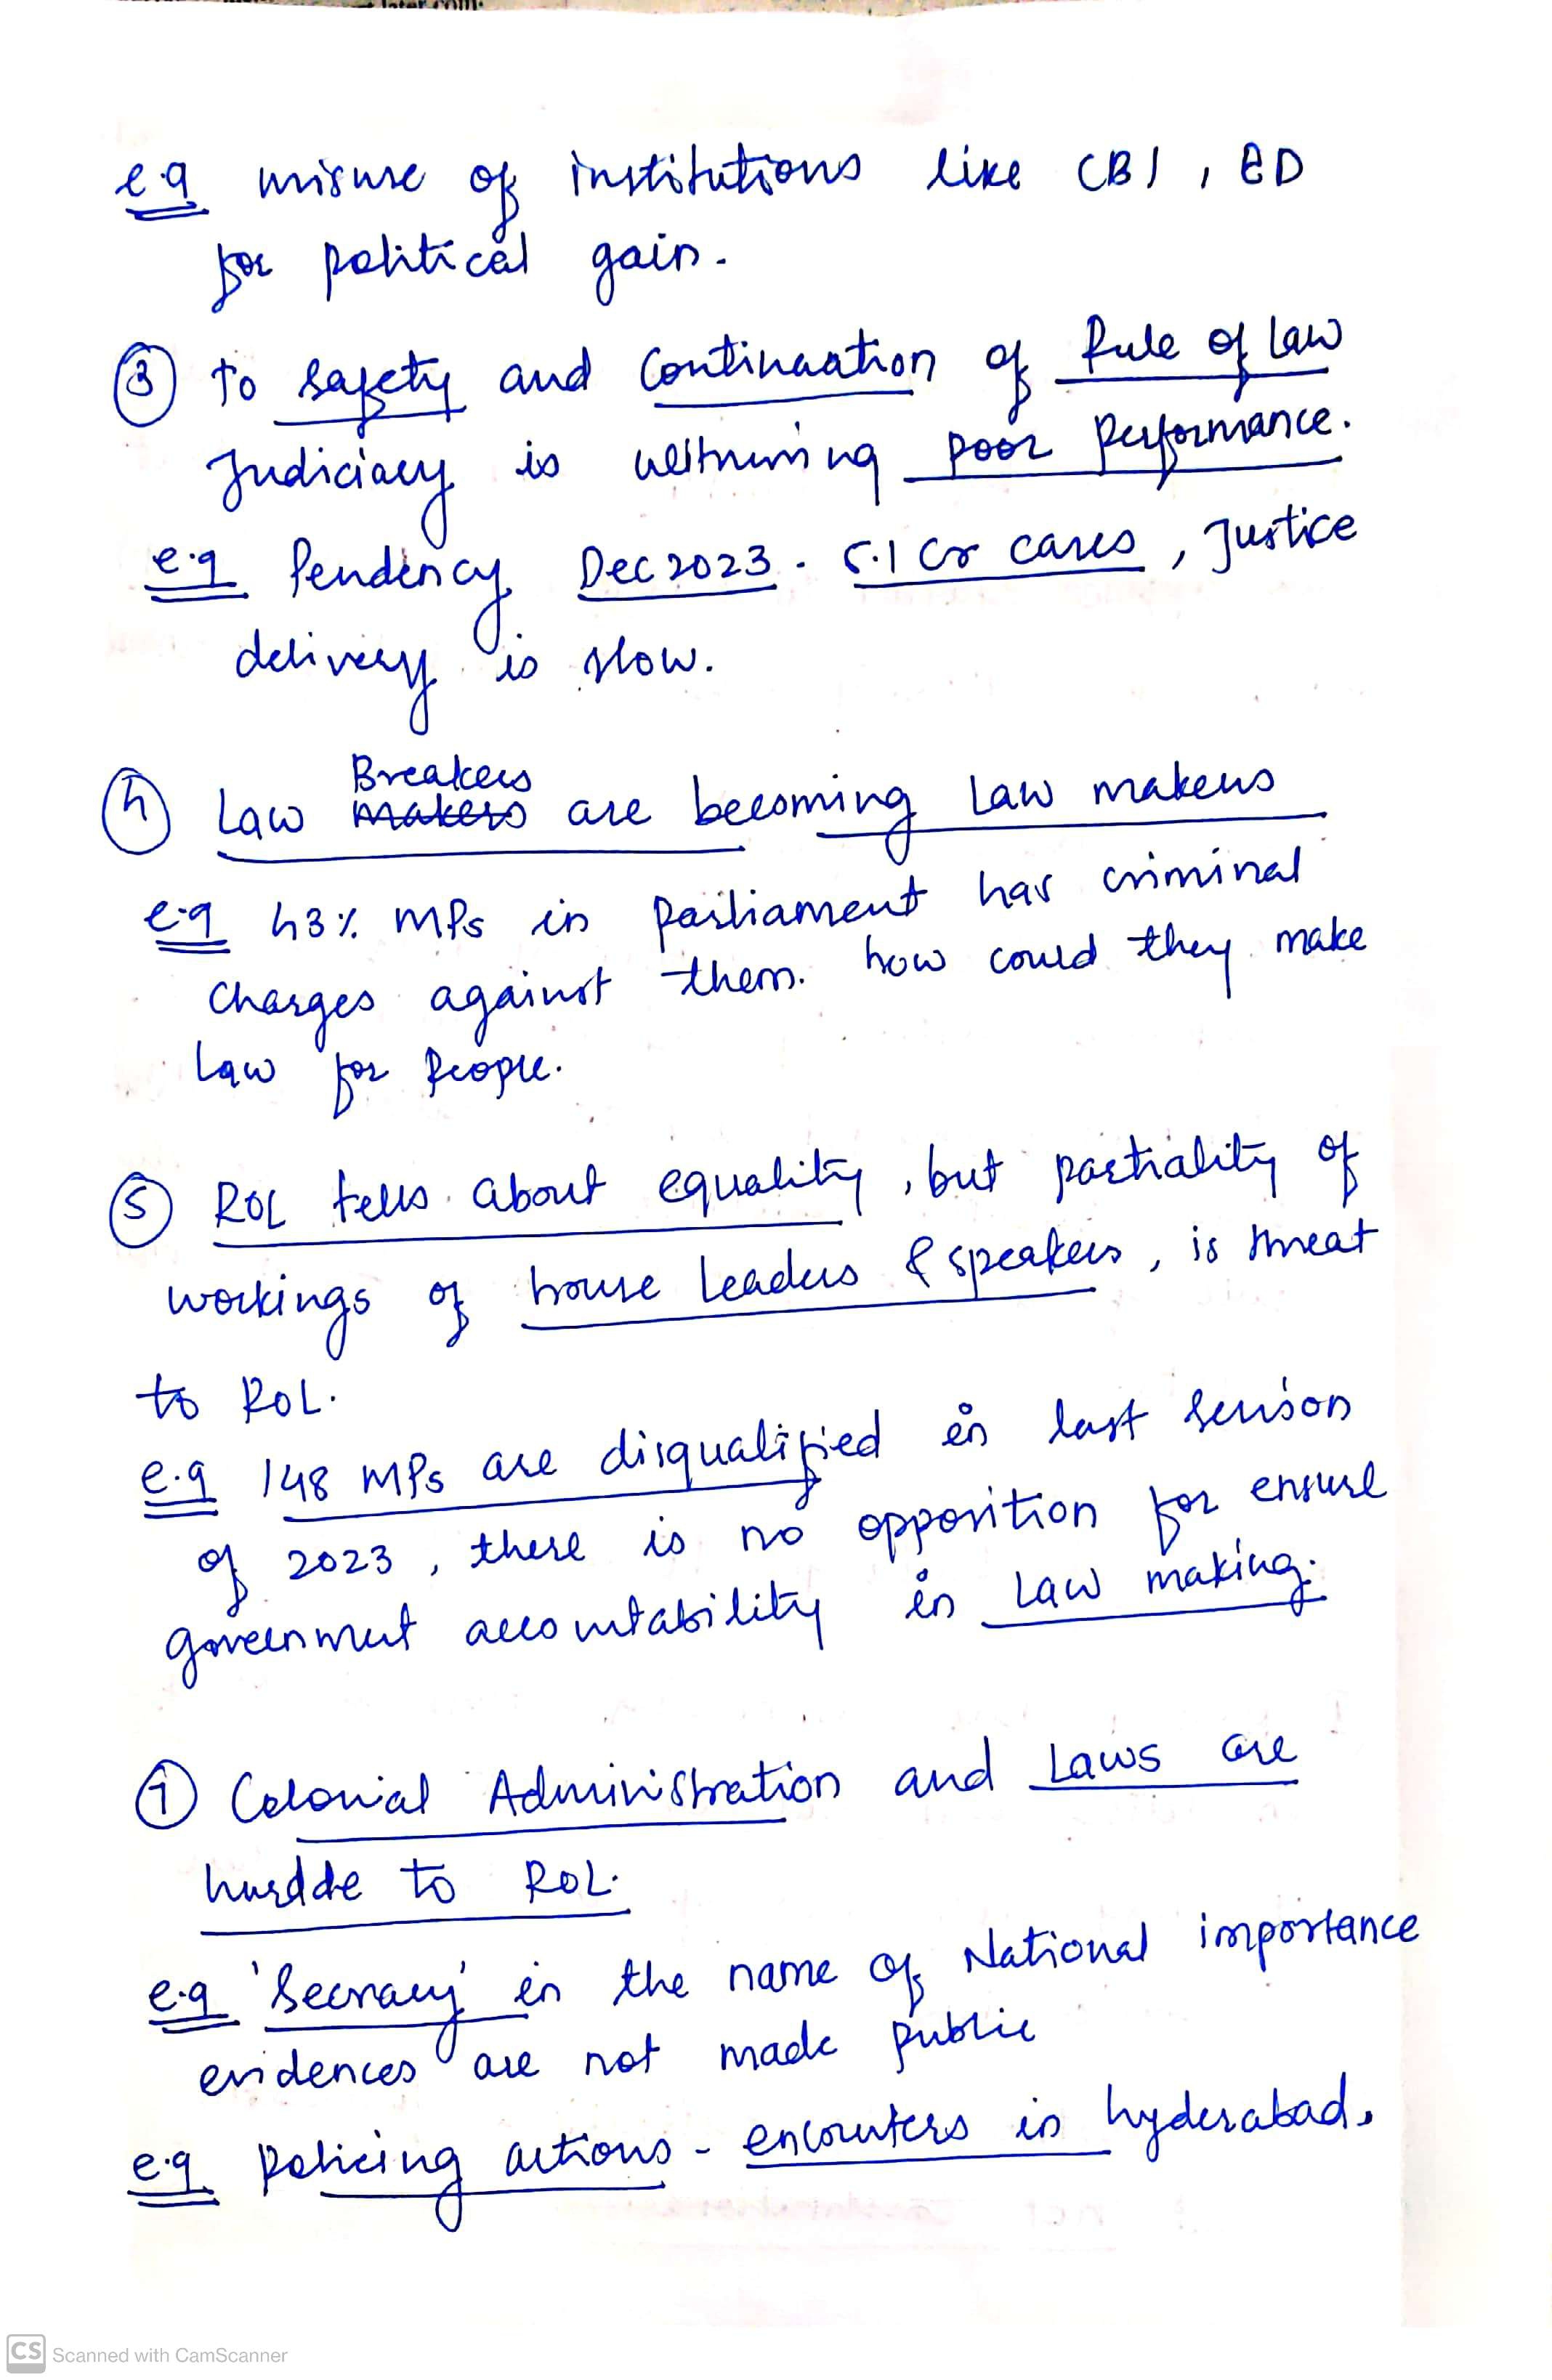 e.g misuse of institutions like CBI, ED
for political gain.
③ To safety and Continuation of Rule of Law
Judiciary is witnessing poor Performance.
e.g Pendency Dec 2023. 5.1 Cr cases, Justice
delivery is slow.
Breakers
④ Law makers are becoming Law makers
e.g 43% MPs in Parliament has criminal
charges against them. how could they make
Law for People.
⑤ ROL tells about equality, but partiality of
workings of house leaders & speakers, is threat
to ROL.
e.g 148 MPs are disqualified in last session
of 2023, there is no opposition for ensure
government accountability in Law making.
⑦ Colonial Administration and Laws are
hurdde to ROL.
e.g 'Secracy' in the name of National importance
evidences are not made public
e.g Policing actions - encounters in hyderabad.
CS Scanned with CamScanner